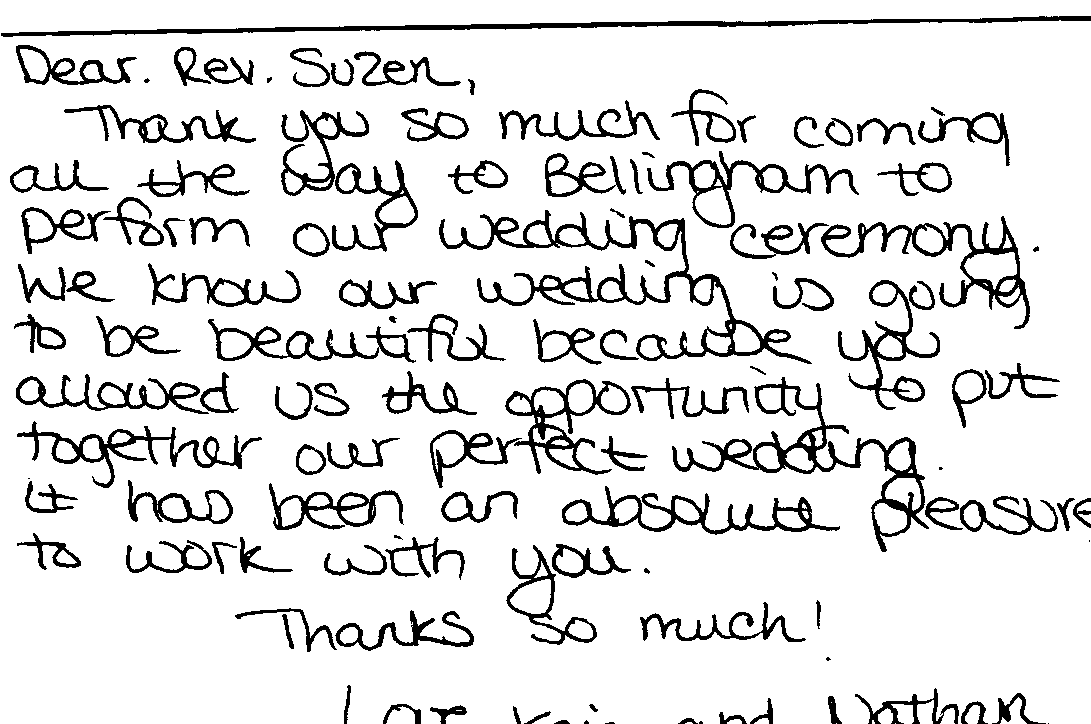 Dear. Rev. Suzen,
Thank you so much for coming
all the way to Bellingham to
perform our wedding ceremony.
We know our wedding is going
to be beautiful because you
allowed us the opportunity to put
together our perfect wedding.
It has been an absolute pleasure
to work with you.
Thanks so much!
and Nathan